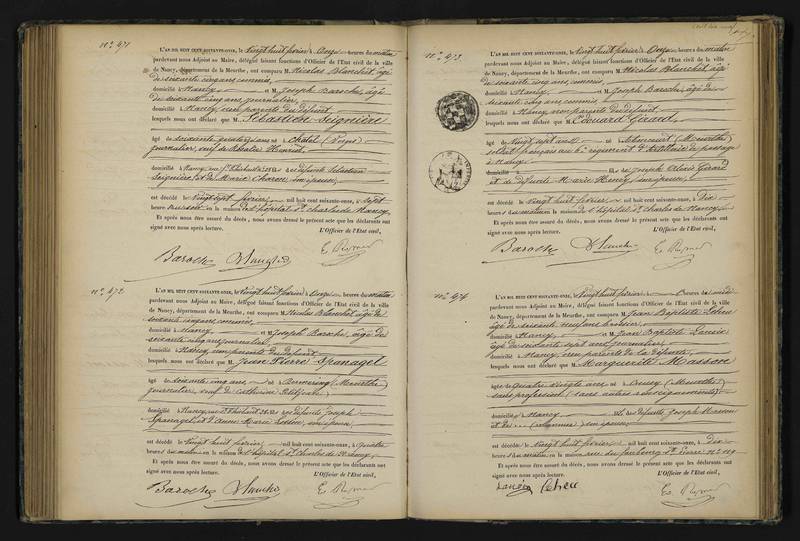 N° 471
L'AN MIL HUIT CENT SOIXANTE-ONZE, le vingt huit février à onze heures du matin
pardevant nous Adjoint au Maire, délégué faisant fonctions d'Officier de l'Etat civil de la ville
de Nancy, département de la Meurthe, ont comparu M. Nicolas Blanchet, âgé
de soixante cinq ans, commis,
domicilié à Nancy, et M. Joseph Baroche, âgé
de soixante cinq ans, journalier,
domicilié à Nancy, non parents du défunt
lesquels nous ont déclaré que M. Sébastien Seignière
âgé de soixante quatorze ans né à Châtel (Vosges)
journalier, veuf de
domicilié à Nancy, fils de défunts Sébastien
Seignière, et de Marie son épouse,
est décédé le vingt sept février mil huit cent soixante-onze, à sept
heures du soir en la maison de l'hôpital St Charles de Nancy,
Et après nous être assuré du décès, nous avons dressé le présent acte que les déclarants ont
signé avec nous après lecture. L'Officier de l'Etat civil,
Baroche Blanchet
N° 472
L'AN MIL HUIT CENT SOIXANTE-ONZE, le vingt huit février à onze heures du matin
pardevant nous Adjoint au Maire, délégué faisant fonctions d'Officier de l'Etat civil de la ville
de Nancy, département de la Meurthe, ont comparu M. Nicolas Blanchet, âgé de
soixante cinq ans, commis
domicilié à Nancy, et M. Joseph Baroche, âgé de
soixante cinq ans, journalier,
domicilié à Nancy, non parents du défunt
lesquels nous ont déclaré que M. Jean Pierre Spanagel
âgé de soixante cinq ans, né à (Meurthe)
journalier, veuf de Catherine
domicilié à Nancy, fils de défunts Joseph
Spanagel, et d'Anne Marie son épouse,
est décédé le vingt huit février, mil huit cent soixante-onze, à quatre
heures du matin en la maison de l'hôpital St Charles de Nancy,
Et après nous être assuré du décès, nous avons dressé le présent acte que les déclarants ont
signé avec nous après lecture. L'Officier de l'Etat civil,
Baroche Blanchet
N° 473
L'AN MIL HUIT CENT SOIXANTE-ONZE, le vingt huit février à onze heures du matin
pardevant nous Adjoint au Maire, délégué faisant fonctions d'Officier de l'Etat civil de la ville
de Nancy, département de la Meurthe, ont comparu M. Nicolas Blanchet, âgé
de soixante cinq ans, commis,
domicilié à Nancy, et M. Joseph Baroche, âgé de
soixante cinq ans, commis,
domicilié à Nancy non parents du défunt,
lesquels nous ont déclaré que M. Edouard Girard,
âgé de vingt sept ans né à (Meurthe)
soldat français au régiment d'Artillerie de passage
à Nancy,
domicilié à fils de Joseph Girard
et de défunte Marie Henry, son épouse,
est décédé le vingt huit février, mil huit cent soixante-onze, à dix
heures du matin en la maison de l'hôpital St Charles de Nancy,
Et après nous être assuré du décès, nous avons dressé le présent acte que les déclarants ont
signé avec nous après lecture. L'Officier de l'Etat civil,
Baroche Blanchet
N° 474
L'AN MIL HUIT CENT SOIXANTE-ONZE, le vingt huit février à heures du
pardevant nous Adjoint au Maire, délégué faisant fonctions d'Officier de l'Etat civil de la ville
de Nancy, département de la Meurthe, ont comparu M. Jean Baptiste
âgé de soixante neuf ans,
domicilié à Nancy, et M. Jean Baptiste
âgé de soixante sept ans, journalier,
domicilié à Nancy, non parents de la défunte,
lesquels nous ont déclaré que M. Marguerite Masson
âgée de quatre vingts ans née à (Meurthe)
sans profession (sans autres renseignements)
domiciliée à Nancy fille de défunts Joseph Masson
et de son épouse,
est décédée le vingt huit février, mil huit cent soixante-onze, à dix
heures du matin en la maison rue du faubourg St Pierre N° 119
Et après nous être assuré du décès, nous avons dressé le présent acte que les déclarants ont
signé avec nous après lecture. L'Officier de l'Etat civil,